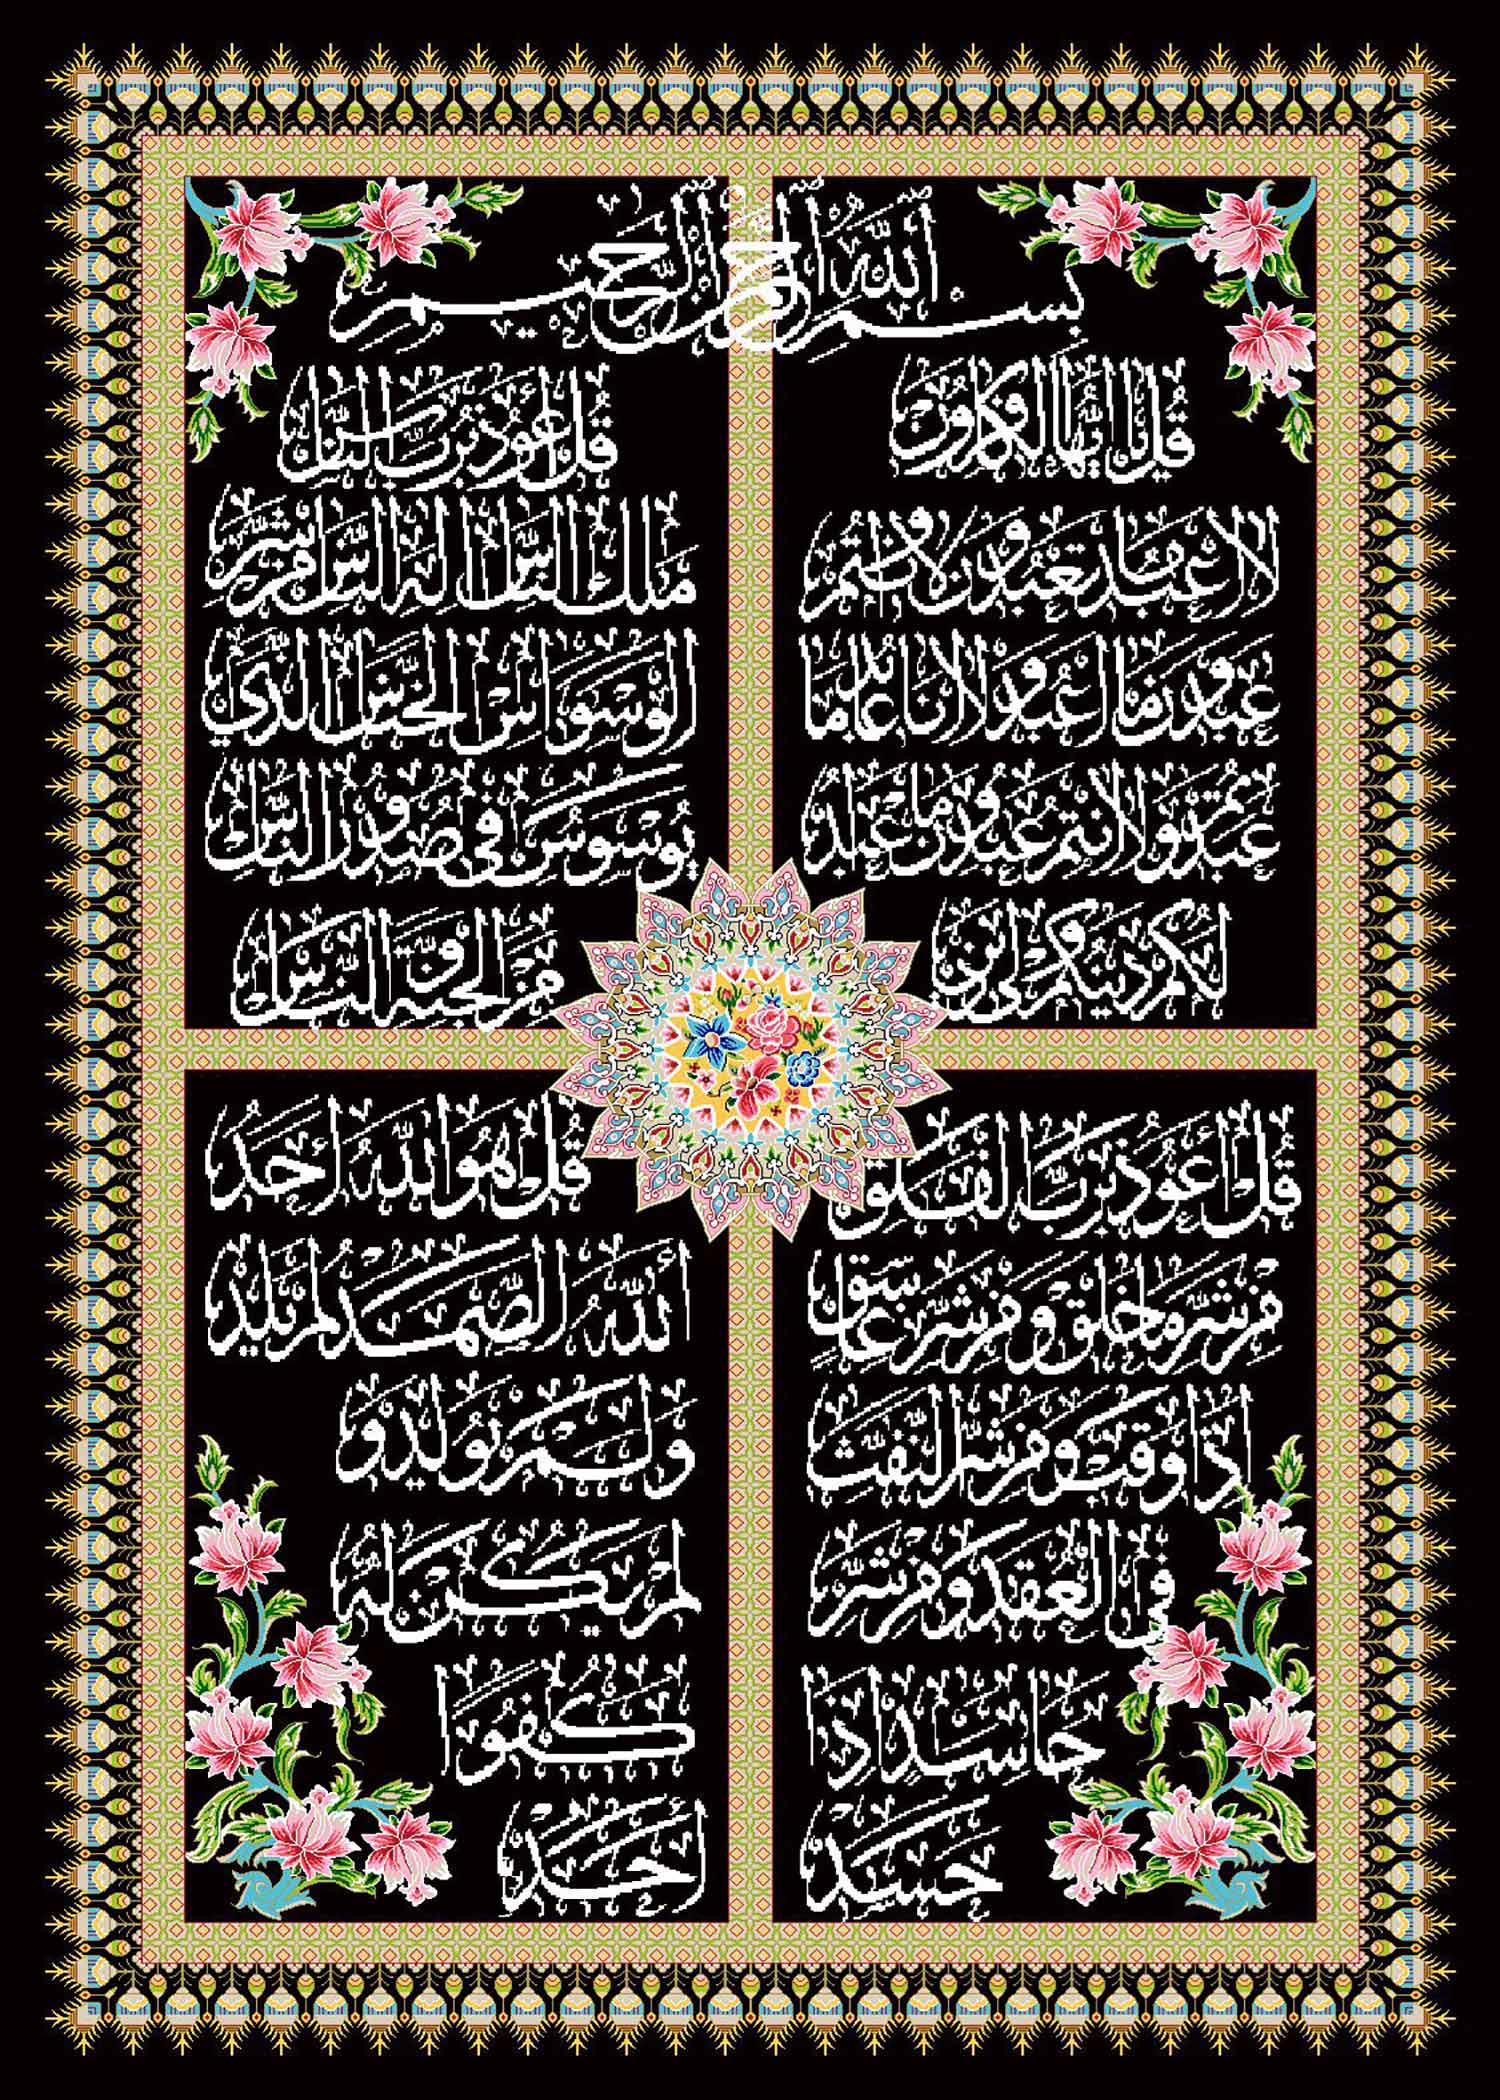 بسم الله الرحمن الرحيم
قل يا ايها الكافرون
لا اعبد ما تعبدون ولا انتم
عبدون ما اعبد ولا انا عابد ما
عبدتم ولا انتم عبدون ما اعبد
لكم دينكم ولي دين
قل أعوذ برب الناس
ملك الناس اله الناس من شر
الوسواس الخناس الذي
يوسوس في صدور الناس
من الجنة و الناس
قل أعوذ برب الفلق
من شر ما خلق و من شر غاسق
اذا وقب و من شر النفثت
في العقد و من شر
حاسد اذا
حسد
قل هو الله أحد
ألله الصمد لم يلد
و لم يولد و
لم يكن له
كفوا
أحد